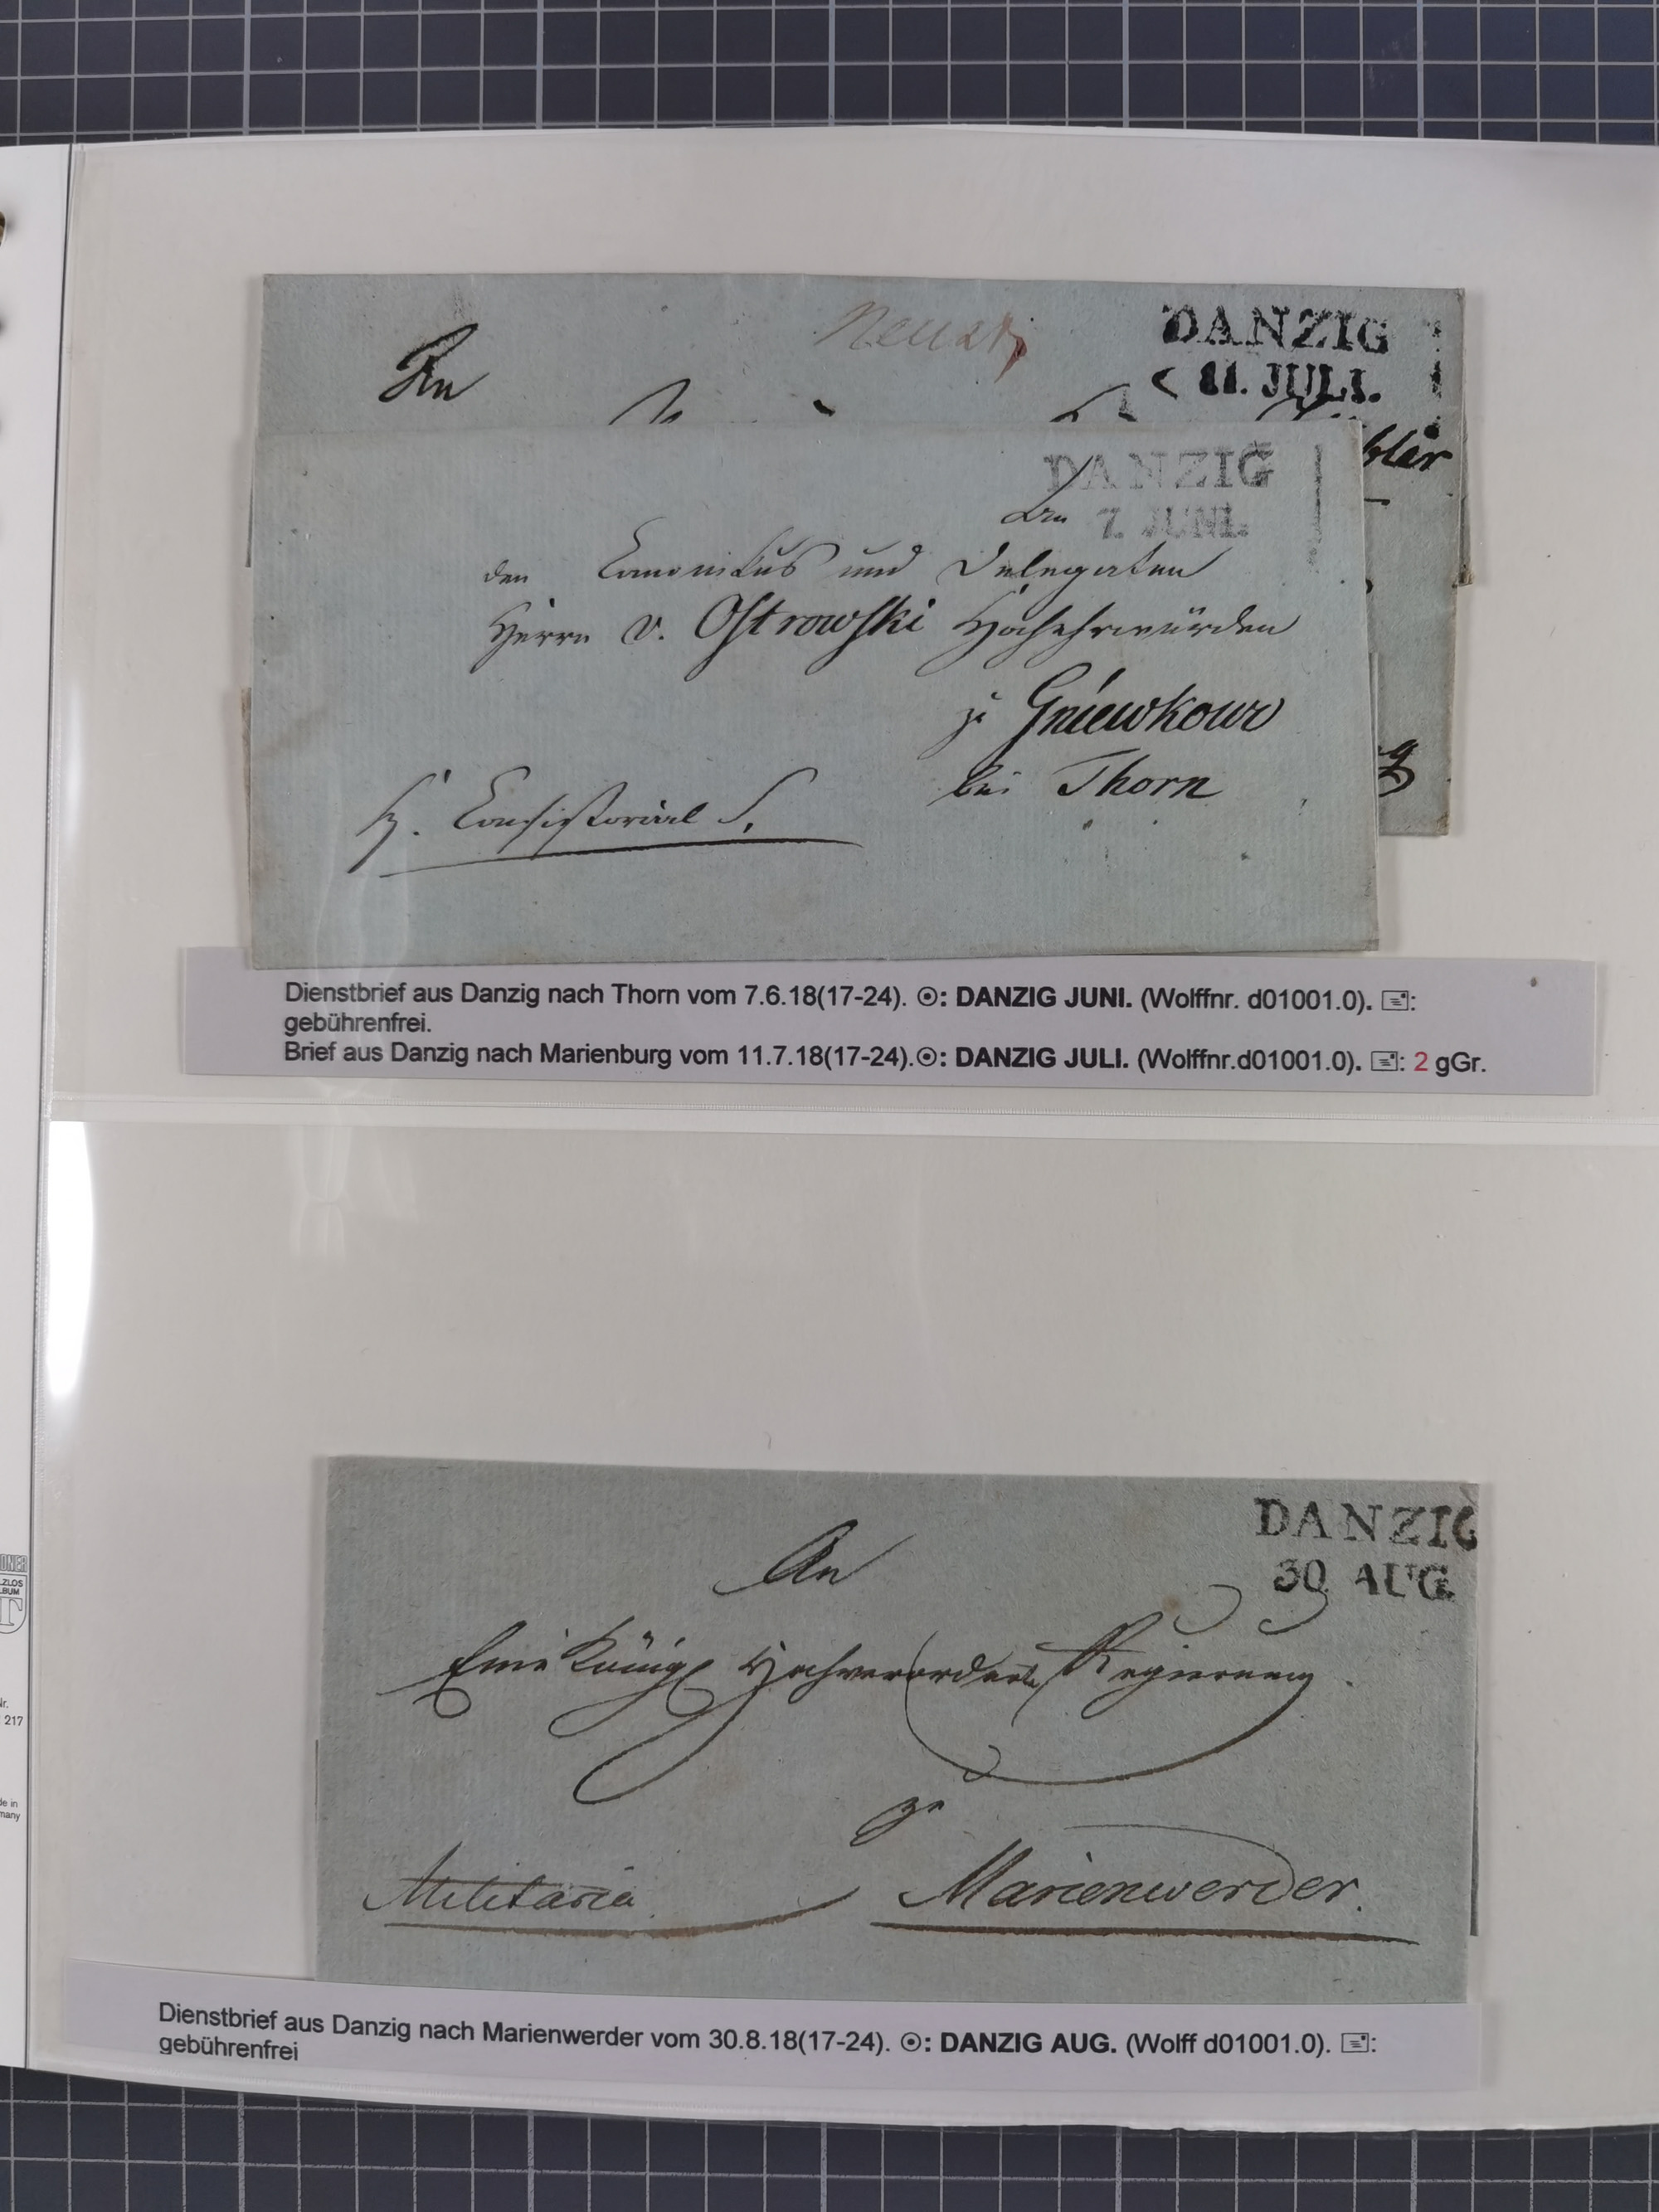 DANZIG
11. JULI.
An
DANZIG
7. JUNI.
An
den Canonikus und Delegaten
Herrn v. Ostrowski Hochehrwürden
zu Gniewkowo
bei Thorn
H. Consistorial S.
Dienstbrief aus Danzig nach Thorn vom 7.6.18(17-24). ⊙: DANZIG JUNI. (Wolffnr. d01001.0). :
gebührenfrei.
Brief aus Danzig nach Marienburg vom 11.7.18(17-24).⊙: DANZIG JULI. (Wolffnr.d01001.0). : 2 gGr.
DANZIG
30 AUG.
An
Eine Königl Hochverordnete Regierung.
zu
Militaria.
Marienwerder.
217
Dienstbrief aus Danzig nach Marienwerder vom 30.8.18(17-24). ⊙: DANZIG AUG. (Wolff d01001.0). :
gebührenfrei